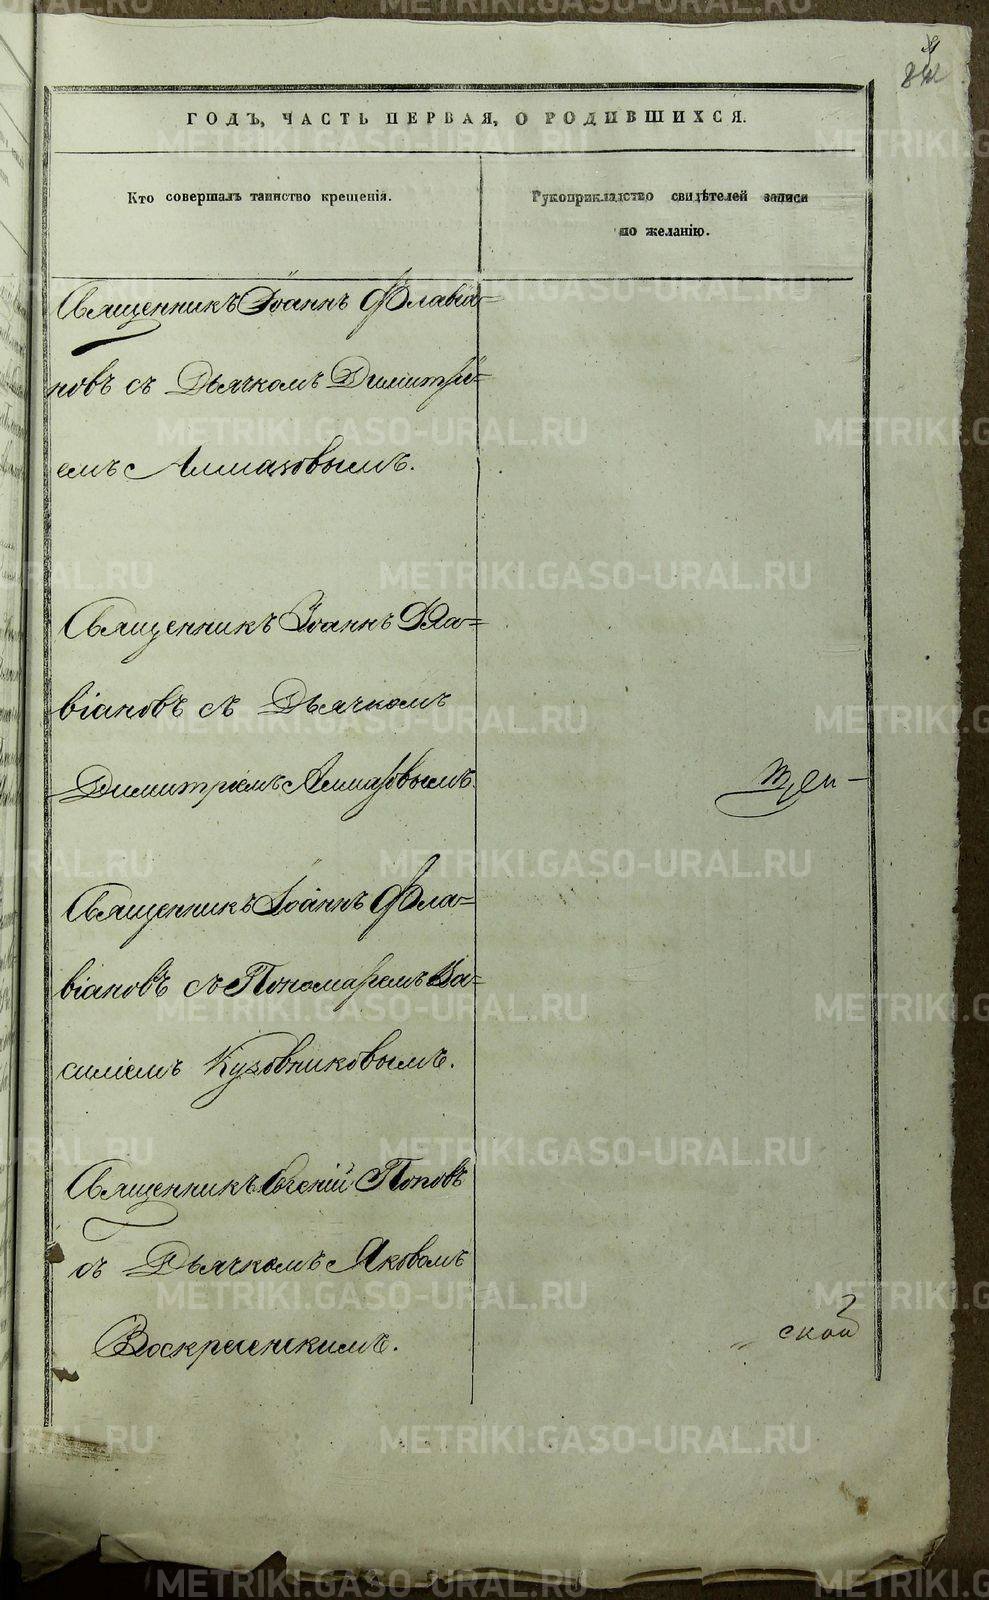 ГОДЪ, ЧАСТЬ ПЕРВАЯ, О РОДИВШИХСЯ.
Кто совершалъ таинство крещенія.
Рукоприкладство свидѣтелей записи
по желанію.
Священникъ Іоаннъ Флавіа=
новъ съ Дьячкомъ Димитрі=
емъ Алмазовымъ.
Священникъ Іоаннъ Фла=
віановъ съ Дьячкомъ
Димитріемъ Алмазовымъ.
Священникъ Іоаннъ Фла=
віановъ съ Пономаремъ Ва=
силіемъ Кузовниковымъ.
Священникъ Евгеній Поповъ
съ Дьячкомъ Яковомъ
Воскресенскимъ.
ской
METRIKI.GASO-URAL.RU